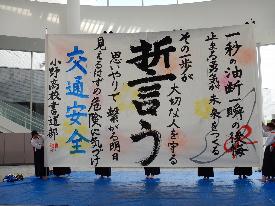 一秒の油断一瞬で後悔
止まる勇気が未来をつくる
その一歩が
大切な人を守る
誓う
思いやりで繋がる明日
見えるはずの危険に気づけ
交通安全
小野高校書道部